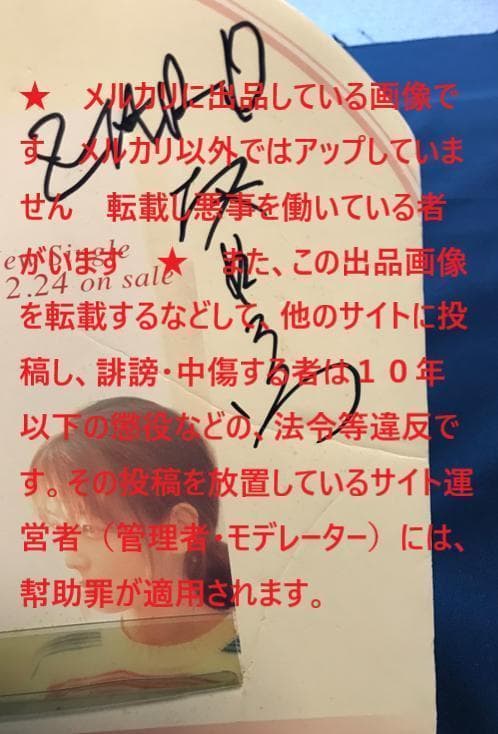 ★　メルカリに出品している画像で
す　メルカリ以外ではアップしていま
せん　転載し悪事を働いている者
がいます　★　また、この出品画像
を転載するなどして、他のサイトに投
稿し、誹謗・中傷する者は１０年
以下の懲役などの、法令等違反で
す。その投稿を放置しているサイト運
営者（管理者・モデレーター）には、
幇助罪が適用されます。
ZARD
New Single
2.24 on sale